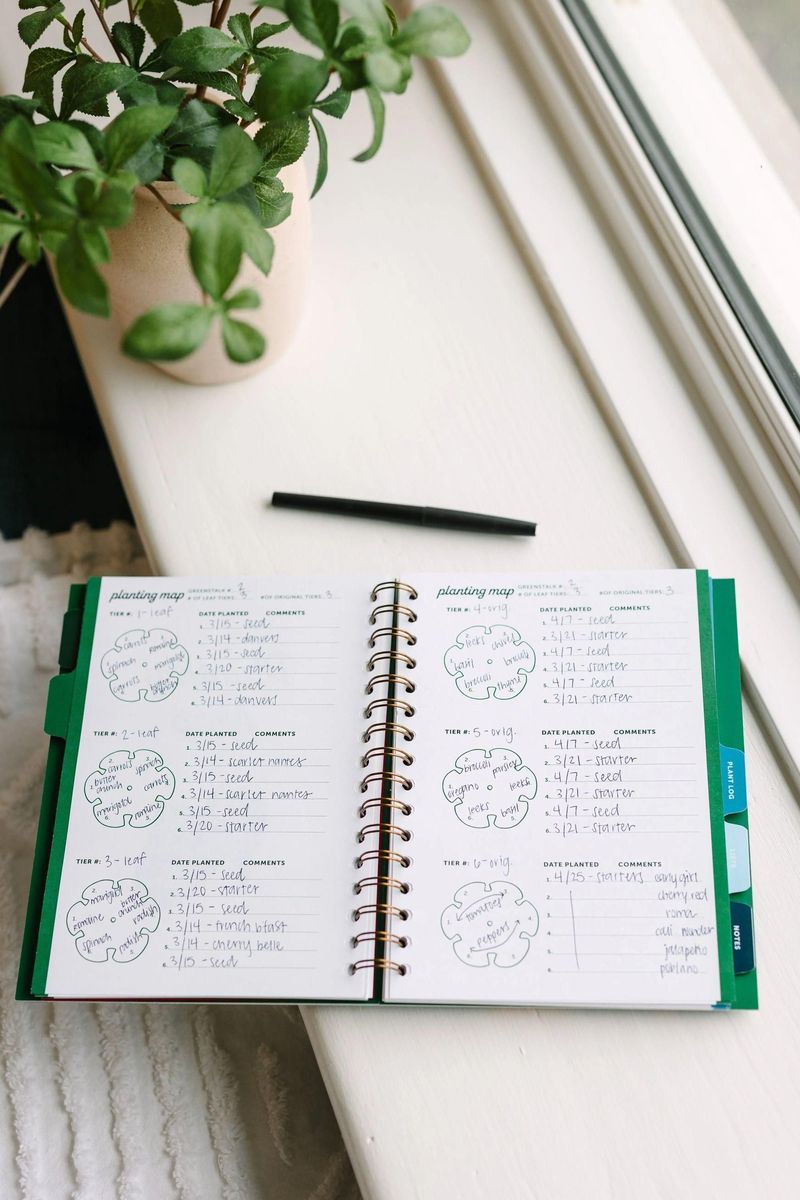 planting map
GREENSTALK #: 2
# OF LEAF TIERS: 3
#OF ORIGINAL TIERS: 3
TIER #: 1-leaf
DATE PLANTED COMMENTS
carrots
romaine
marigold
butter crunch
carrots
spinach
1. 3/15 - seed
2. 3/14 - danvers
3. 3/15 - seed
4. 3/20 - starter
5. 3/15 - seed
6. 3/14 - danvers
TIER #: 2-leaf
DATE PLANTED COMMENTS
carrots
spinach
carrots
romaine
marigold
butter crunch
1. 3/15 - seed
2. 3/14 - scarlet nantes
3. 3/15 - seed
4. 3/14 - scarlet nantes
5. 3/15 - seed
6. 3/20 - starter
TIER #: 3-leaf
DATE PLANTED COMMENTS
marigold
butter crunch
radish
radish
spinach
romaine
1. 3/15 - seed
2. 3/20 - starter
3. 3/15 - seed
4. 3/14 - french bfast
5. 3/14 - cherry belle
6. 3/15 - seed
planting map
GREENSTALK #: 2
# OF LEAF TIERS: 3
#OF ORIGINAL TIERS: 3
TIER #: 4-orig.
DATE PLANTED COMMENTS
leeks
broccoli
thyme
broccoli
basil
1. 4/7 - seed
2. 3/21 - starter
3. 4/7 - seed
4. 3/21 - starter
5. 4/7 - seed
6. 3/21 - starter
TIER #: 5-orig.
DATE PLANTED COMMENTS
broccoli
parsley
leeks
basil
leeks
oregano
1. 4/7 - seed
2. 3/21 - starter
3. 4/7 - seed
4. 3/21 - starter
5. 4/7 - seed
6. 3/21 - starter
TIER #: 6-orig.
DATE PLANTED COMMENTS
tomatoes
peppers
1. 4/25 - starters early girl
2. cherry red
3. roma
4. cali wonder
5. jalapeño
6. poblano
PLANT LOG
LISTS
NOTES